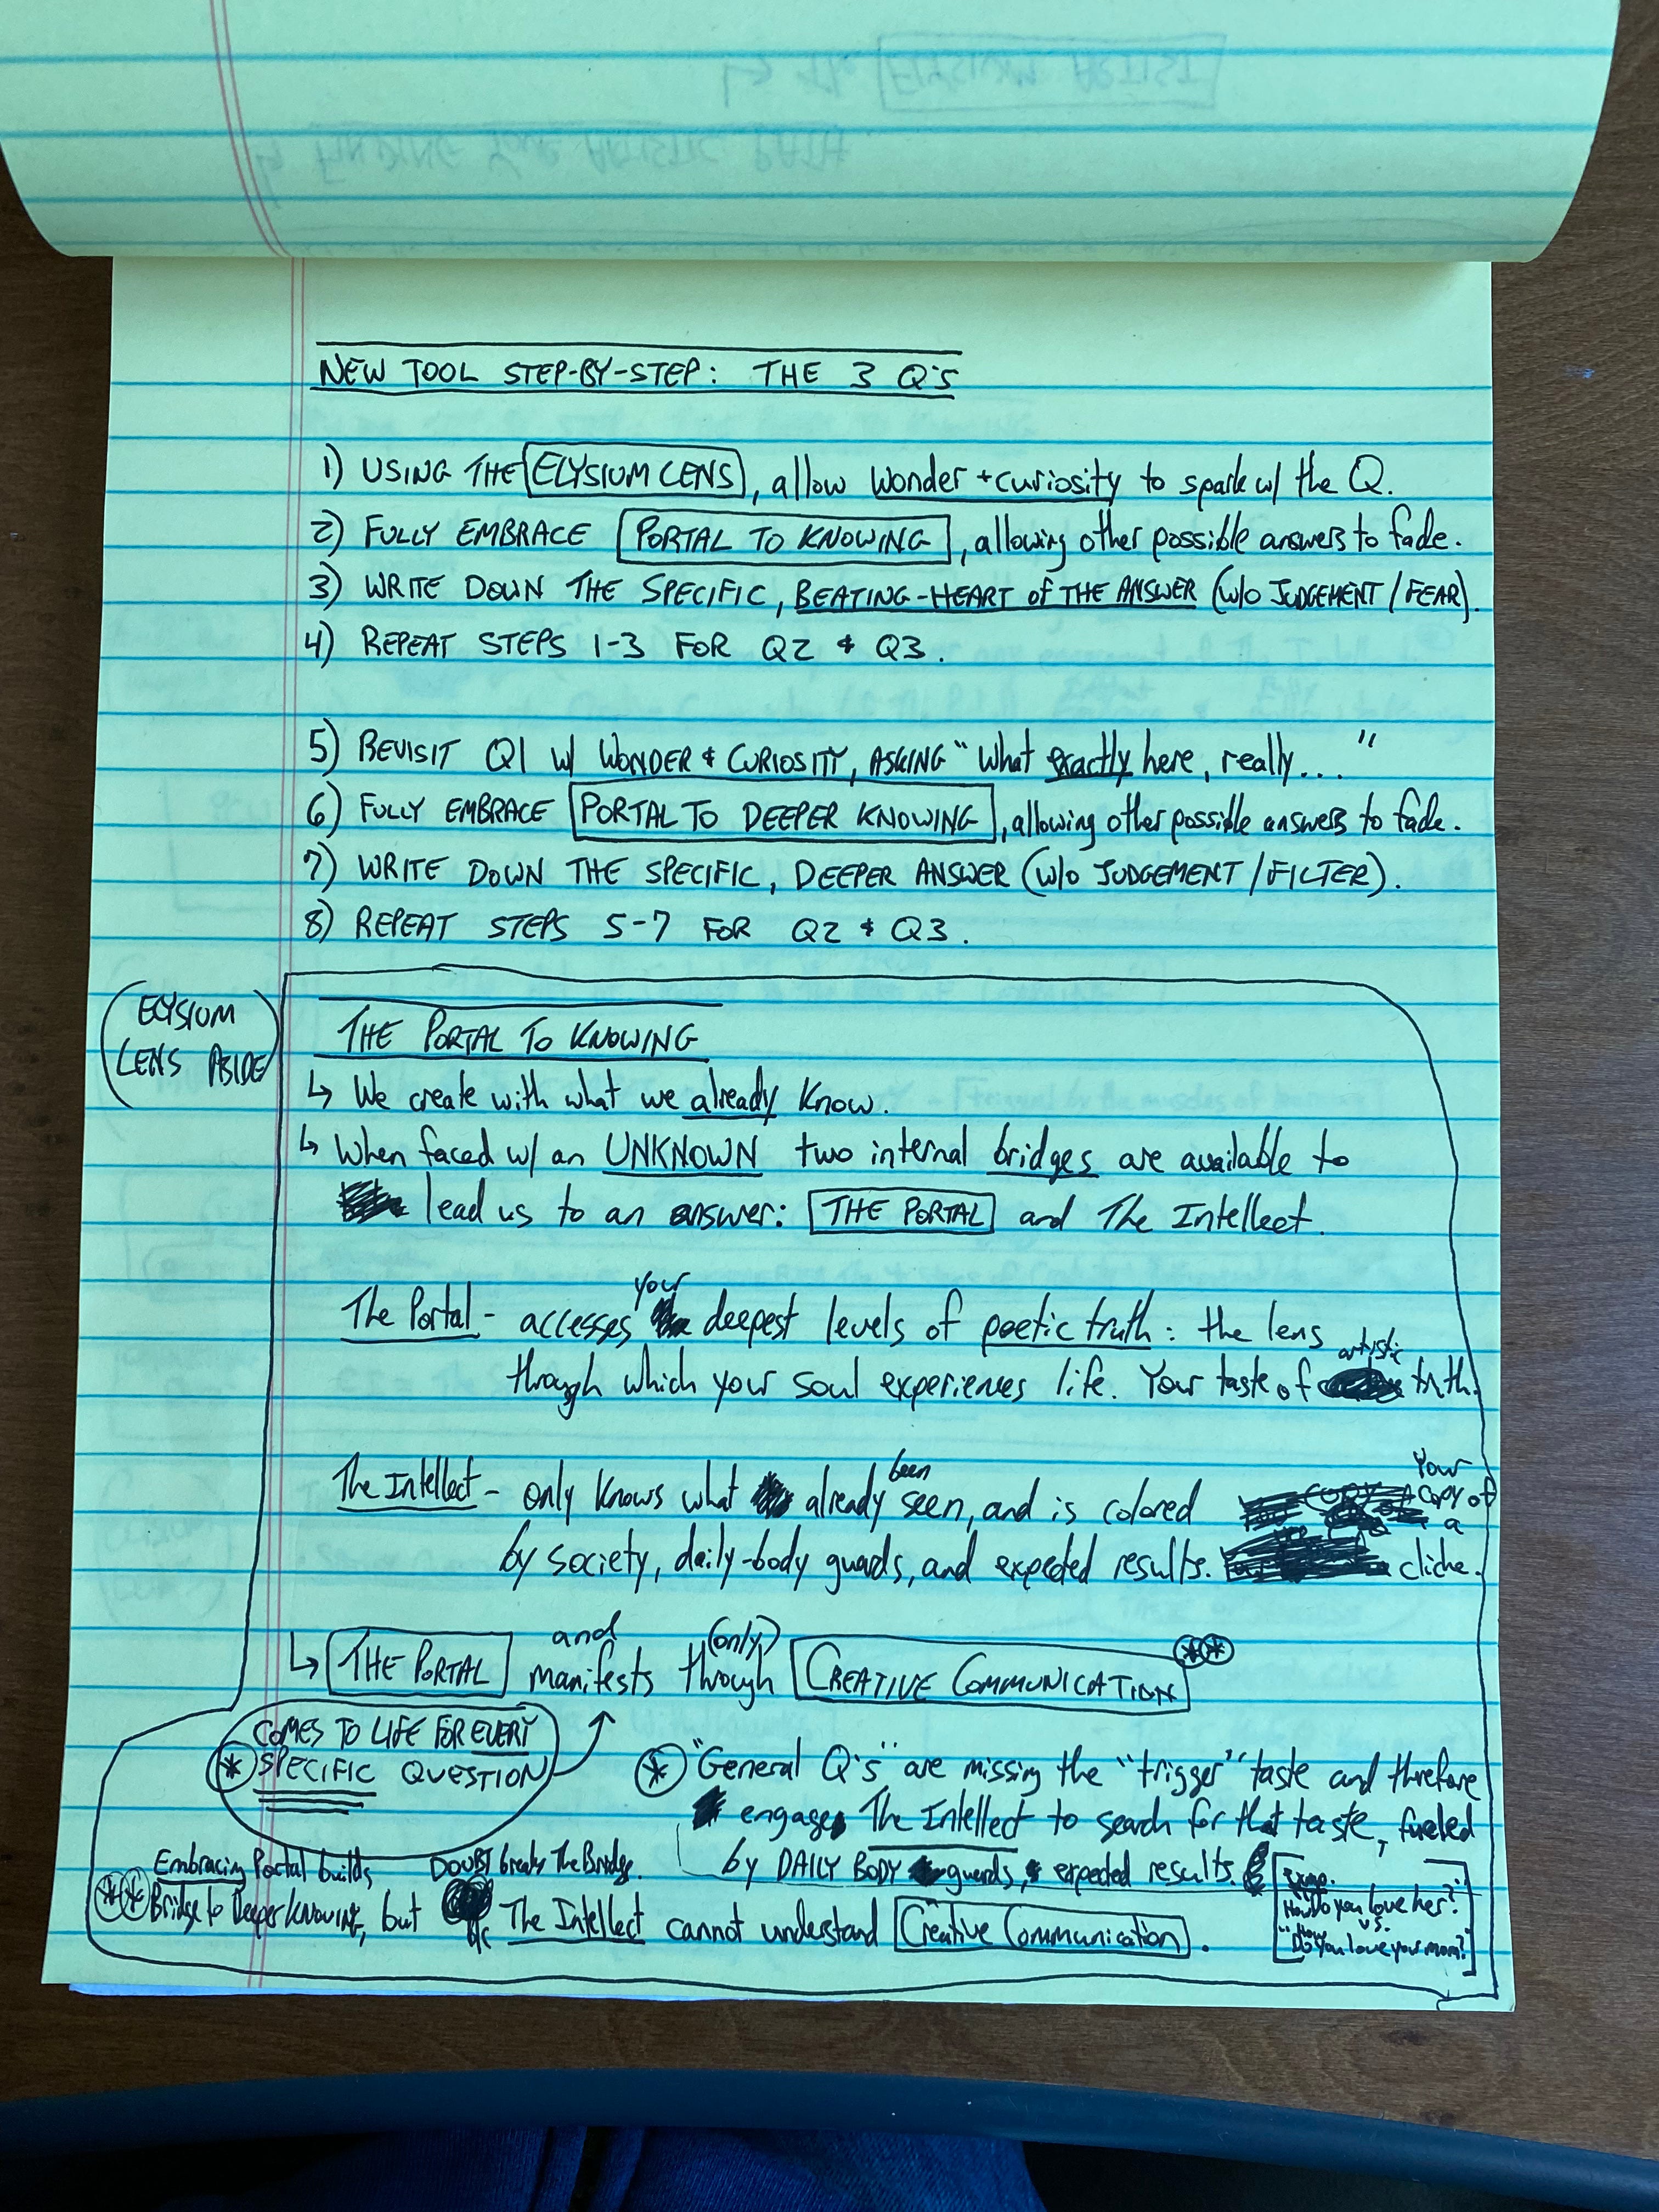 NEW TOOL STEP-BY-STEP: THE 3 Q'S
1) USING THE ELYSIUM LENS, allow wonder + curiosity to spark w/ the Q.
2) FULLY EMBRACE PORTAL TO KNOWING, allowing other possible answers to fade.
3) WRITE DOWN THE SPECIFIC, BEATING-HEART of THE ANSWER (w/o JUDGEMENT/FEAR).
4) REPEAT STEPS 1-3 FOR Q2 & Q3.
5) REVISIT Q1 w/ WONDER & CURIOSITY, ASKING "What exactly here, really..."
6) FULLY EMBRACE PORTAL TO DEEPER KNOWING, allowing other possible answers to fade.
7) WRITE DOWN THE SPECIFIC, DEEPER ANSWER (w/o JUDGEMENT/FILTER).
8) REPEAT STEPS 5-7 FOR Q2 & Q3.
(ELYSIUM
LENS ASIDE)
THE PORTAL TO KNOWING
↳ We create with what we already know.
↳ When faced w/ an UNKNOWN two internal bridges are available to
lead us to an answer: THE PORTAL and The Intellect.
The Portal - accesses your deepest levels of poetic truth: the lens
through which your soul experiences life. Your taste of artistic truth.
The Intellect - only knows what already been seen, and is colored
by society, daily-body guards, and expected results. Your copy of a cliche.
↳ THE PORTAL and manifests (only) through CREATIVE COMMUNICATION **
COMES TO LIFE FOR EVERY
* SPECIFIC QUESTION
* "General Q's" are missing the "trigger" taste and therefore
engage The Intellect to search for that taste, fueled
by DAILY BODY guards, & expected results.
How Do you love her?"
vs.
"How Do you love your mom?"
** Embracing Portal builds
Bridge to Deeper Knowing, but DOUBT breaks The Bridge.
b/c The Intellect cannot understand Creative Communication.